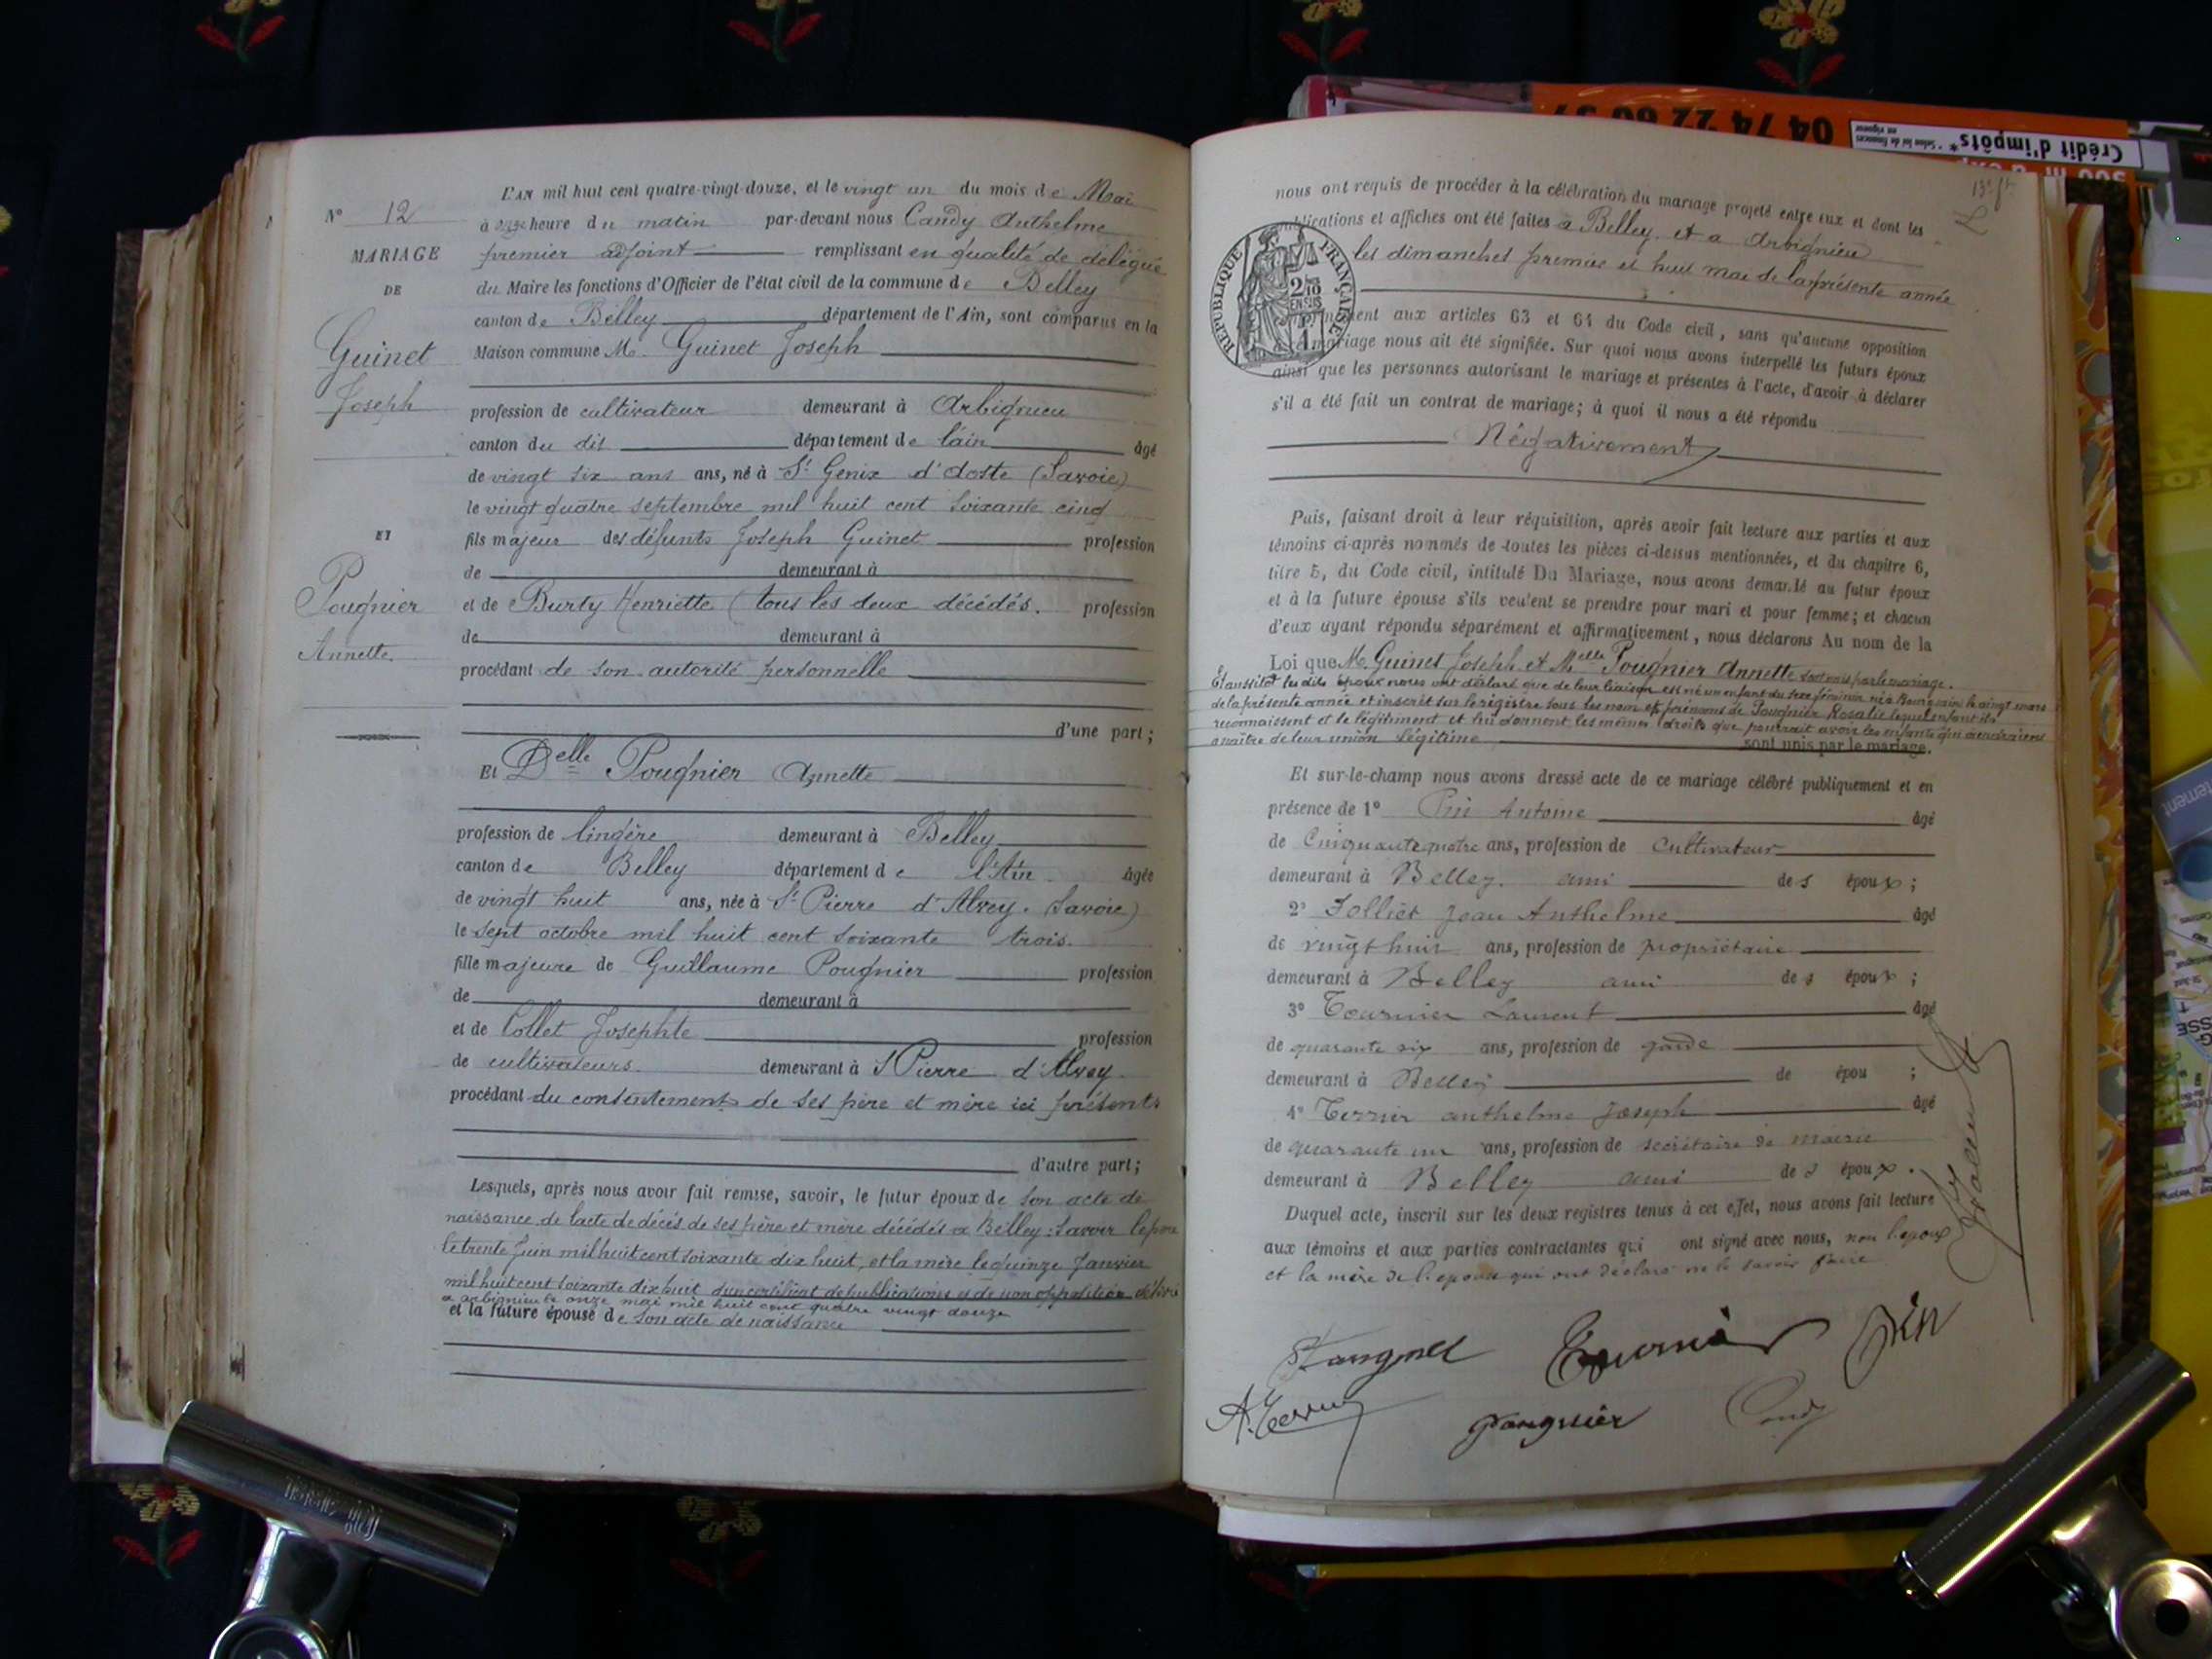 L'AN mil huit cent quatre-vingt-douze, et le vingt un du mois de Mai
N° 12
à onze heure du matin par-devant nous Candy Anthelme
MARIAGE
premier adjoint remplissant en qualité de délégué
DE
du Maire les fonctions d'Officier de l'état civil de la commune de Belley
canton de Belley département de l'Ain, sont comparus en la
Guinet
Maison commune M. Guinet Joseph
Joseph
profession de cultivateur demeurant à Arbignieu
canton du dit département de l'ain âgé
de vingt six ans ans, né à St Genix d'Aoste (Savoie)
le vingt quatre septembre mil huit cent soixante cinq
ET
fils majeur des défunts Joseph Guinet profession
de demeurant à
Pougnier
et de Burty Henriette (tous les deux décédés. profession
de demeurant à
Annette.
procédant de son autorité personnelle
d'une part;
Et Delle Pougnier Annette
profession de lingère demeurant à Belley
canton de Belley département de l'Ain. âgée
de vingt huit ans, née à St Pierre d'Alvey. (Savoie)
le sept octobre mil huit cent soixante trois.
fille majeure de Guillaume Pougnier profession
de demeurant à
et de Collet Josephte profession
de cultivateurs. demeurant à St Pierre d'Alvey.
procédant du consentement de ses père et mère ici présents
d'autre part;
Lesquels, après nous avoir fait remise, savoir, le futur époux de son acte de
naissance de l'acte de décès de ses père et mère décédés a Belley: Savoir le père
le trente Juin mil huit cent soixante dix huit, et la mère le quinze Janvier
mil huit cent soixante dix huit d'un certificat de publications et de non opposition délivré
a arbignieu le onze mai mil huit cent quatre vingt douze
et la future épouse de son acte de naissance
13e ft
nous ont requis de procéder à la célébration du mariage projeté entre eux et dont les
publications et affiches ont été faites à Belley et a Arbignieu
les dimanches premier et huit mai de la présente année
RÉPUBLIQUE FRANÇAISE
2/10 EN SUS
conformément aux articles 63 et 64 du Code civil, sans qu'aucune opposition
au mariage nous ait été signifiée. Sur quoi nous avons interpellé les futurs époux
ainsi que les personnes autorisant le mariage et présentes à l'acte, d'avoir à déclarer
s'il a été fait un contrat de mariage; à quoi il nous a été répondu
Négativement
Puis, faisant droit à leur réquisition, après avoir fait lecture aux parties et aux
témoins ci-après nommés de toutes les pièces ci-dessus mentionnées, et du chapitre 6,
titre 5, du Code civil, intitulé Du Mariage, nous avons demandé au futur époux
et à la future épouse s'ils veulent se prendre pour mari et pour femme; et chacun
d'eux ayant répondu séparément et affirmativement, nous déclarons Au nom de la
Loi que M. Guinet Joseph et Melle Pougnier Annette sont unis par le mariage.
Et aussitot les dits époux nous ont déclaré que de leur liaison est né un enfant du sexe féminin né à le vingt mars
de la présente année et inscrit sur le registre sous les nom et prénoms de Pougnier Rosalie lequel enfant ils
reconnaissent et le légitiment et lui donnent les mêmes droits que pourrait avoir les enfants qui viendraient
a naître de leur union légitime sont unis par le mariage.
Et sur-le-champ nous avons dressé acte de ce mariage célébré publiquement et en
présence de 1° Prin Antoine âgé
de Cinquante quatre ans, profession de cultivateur
demeurant à Belley. ami des époux;
2° Jolliet Jean Anthelme âgé
de vingt huit ans, profession de propriétaire
demeurant à Belley ami des époux;
3° Tournier Laurent âgé
de quarante six ans, profession de garde
demeurant à Belley de épou ;
4° Terrier anthelme Joseph âgé
de quarante un ans, profession de secrétaire de mairie
demeurant à Belley ami des époux.
Duquel acte, inscrit sur les deux registres tenus à cet effet, nous avons fait lecture
aux témoins et aux parties contractantes qui ont signé avec nous, non l'epoux
et la mère de l'epouse qui ont déclaré ne le savoir faire
Tournier
A. Terrier
Pougnier
Candy
04 74 22 60 37
Crédit d'impôts*
* Selon loi de finances
en vigueur